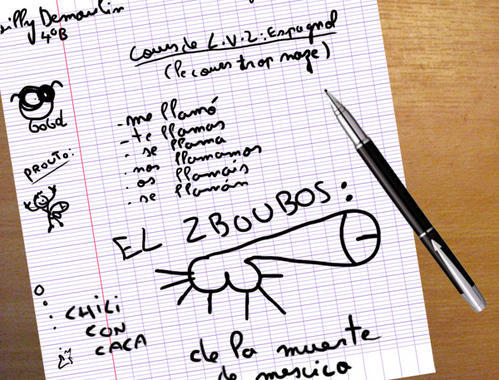 illy Demoulin
4°B
Cours de L.V.2: Espagnol
(le cours trop naze)
GoGol
- me llamó
- te llamas
- se llama
- nos llamamos
- os llamais
- se llamán
PROUTO:
EL ZBOUBOS:
CHILI
CON
CACA
de la muerte
de mexico